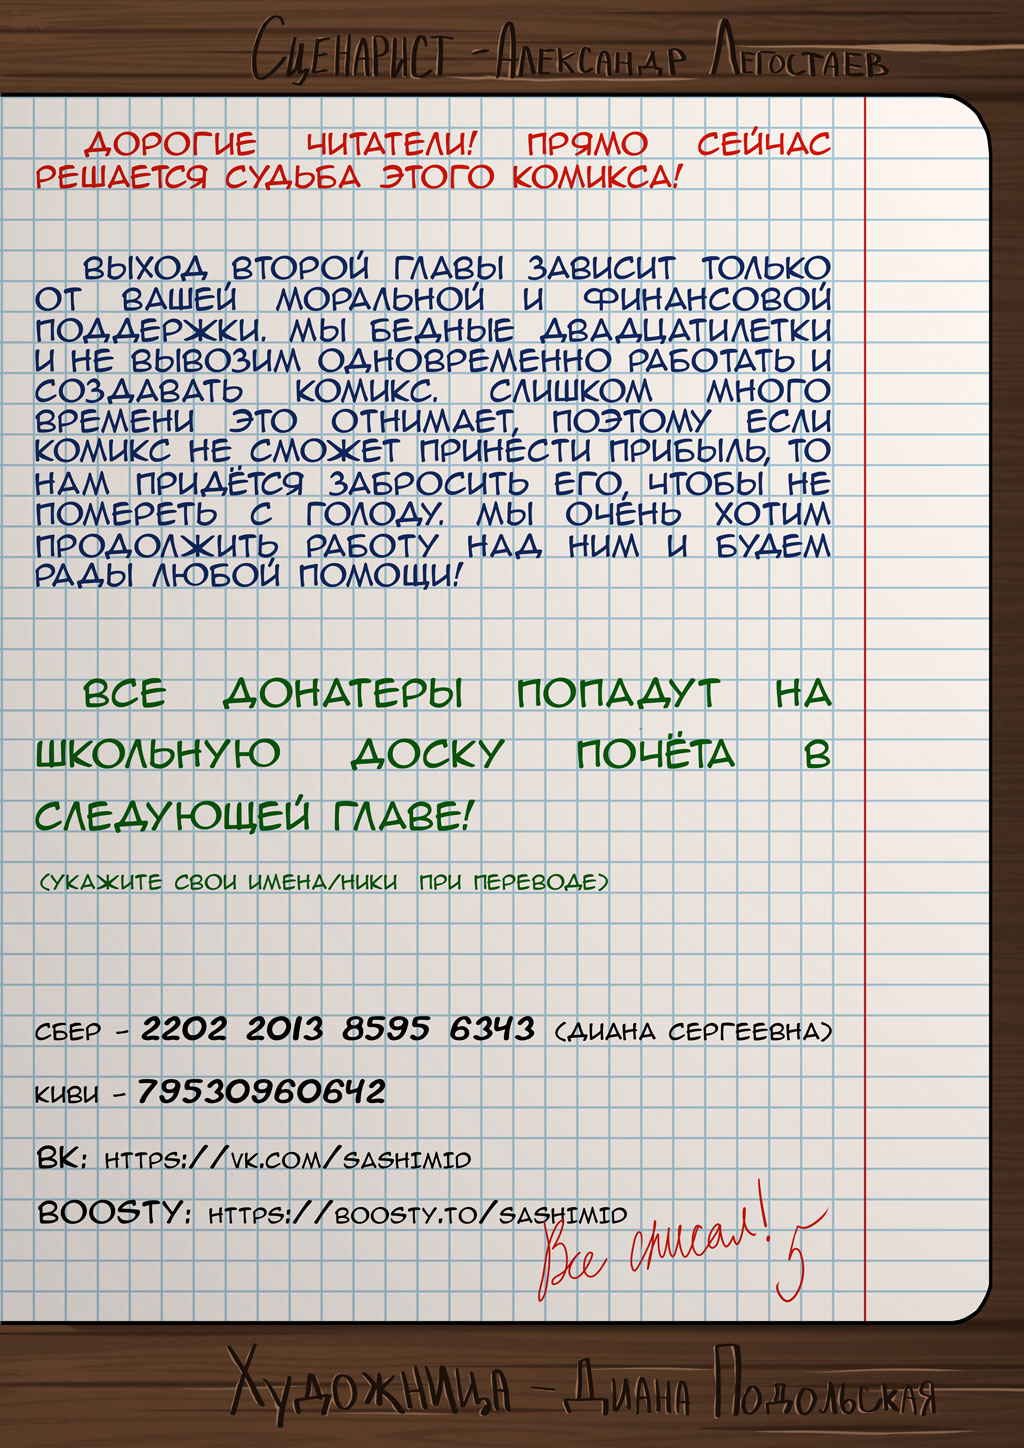 Сценарист - Александр Легостаев
ДОРОГИЕ ЧИТАТЕЛИ! ПРЯМО СЕЙЧАС
РЕШАЕТСЯ СУДЬБА ЭТОГО КОМИКСА!
ВЫХОД ВТОРОЙ ГЛАВЫ ЗАВИСИТ ТОЛЬКО
ОТ ВАШЕЙ МОРАЛЬНОЙ И ФИНАНСОВОЙ
ПОДДЕРЖКИ. МЫ БЕДНЫЕ ДВАДЦАТИЛЕТКИ
И НЕ ВЫВОЗИМ ОДНОВРЕМЕННО РАБОТАТЬ И
СОЗДАВАТЬ КОМИКС. СЛИШКОМ МНОГО
ВРЕМЕНИ ЭТО ОТНИМАЕТ, ПОЭТОМУ ЕСЛИ
КОМИКС НЕ СМОЖЕТ ПРИНЕСТИ ПРИБЫЛЬ, ТО
НАМ ПРИДЁТСЯ ЗАБРОСИТЬ ЕГО, ЧТОБЫ НЕ
ПОМЕРЕТЬ С ГОЛОДУ. МЫ ОЧЕНЬ ХОТИМ
ПРОДОЛЖИТЬ РАБОТУ НАД НИМ И БУДЕМ
РАДЫ ЛЮБОЙ ПОМОЩИ!
ВСЕ ДОНАТЕРЫ ПОПАДУТ НА
ШКОЛЬНУЮ ДОСКУ ПОЧЁТА В
СЛЕДУЮЩЕЙ ГЛАВЕ!
(УКАЖИТЕ СВОИ ИМЕНА/НИКИ ПРИ ПЕРЕВОДЕ)
СБЕР - 2202 2013 8595 6343 (ДИАНА СЕРГЕЕВНА)
КИВИ - 79530960642
ВК: HTTPS://VK.COM/SASHIMID
BOOSTY: HTTPS://BOOSTY.TO/SASHIMID
Все списал! 5
Художница - Диана Подольская